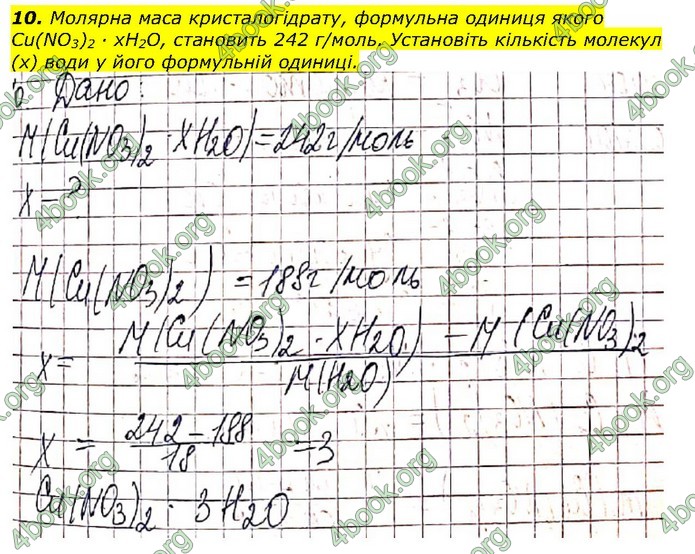 10. Молярна маса кристалогідрату, формульна одиниця якого
Cu(NO3)2 · xH2O, становить 242 г/моль. Установіть кількість молекул
(x) води у його формульній одиниці.
Дано:
M(Cu(NO3)2 · XH2O) = 242 г/моль
X - ?
M(Cu(NO3)2) = 188 г/моль
X = M(Cu(NO3)2 · XH2O) - M(Cu(NO3)2
M(H2O)
X = 242 - 188 = 3
18
Cu(NO3)2 · 3H2O
4book.org